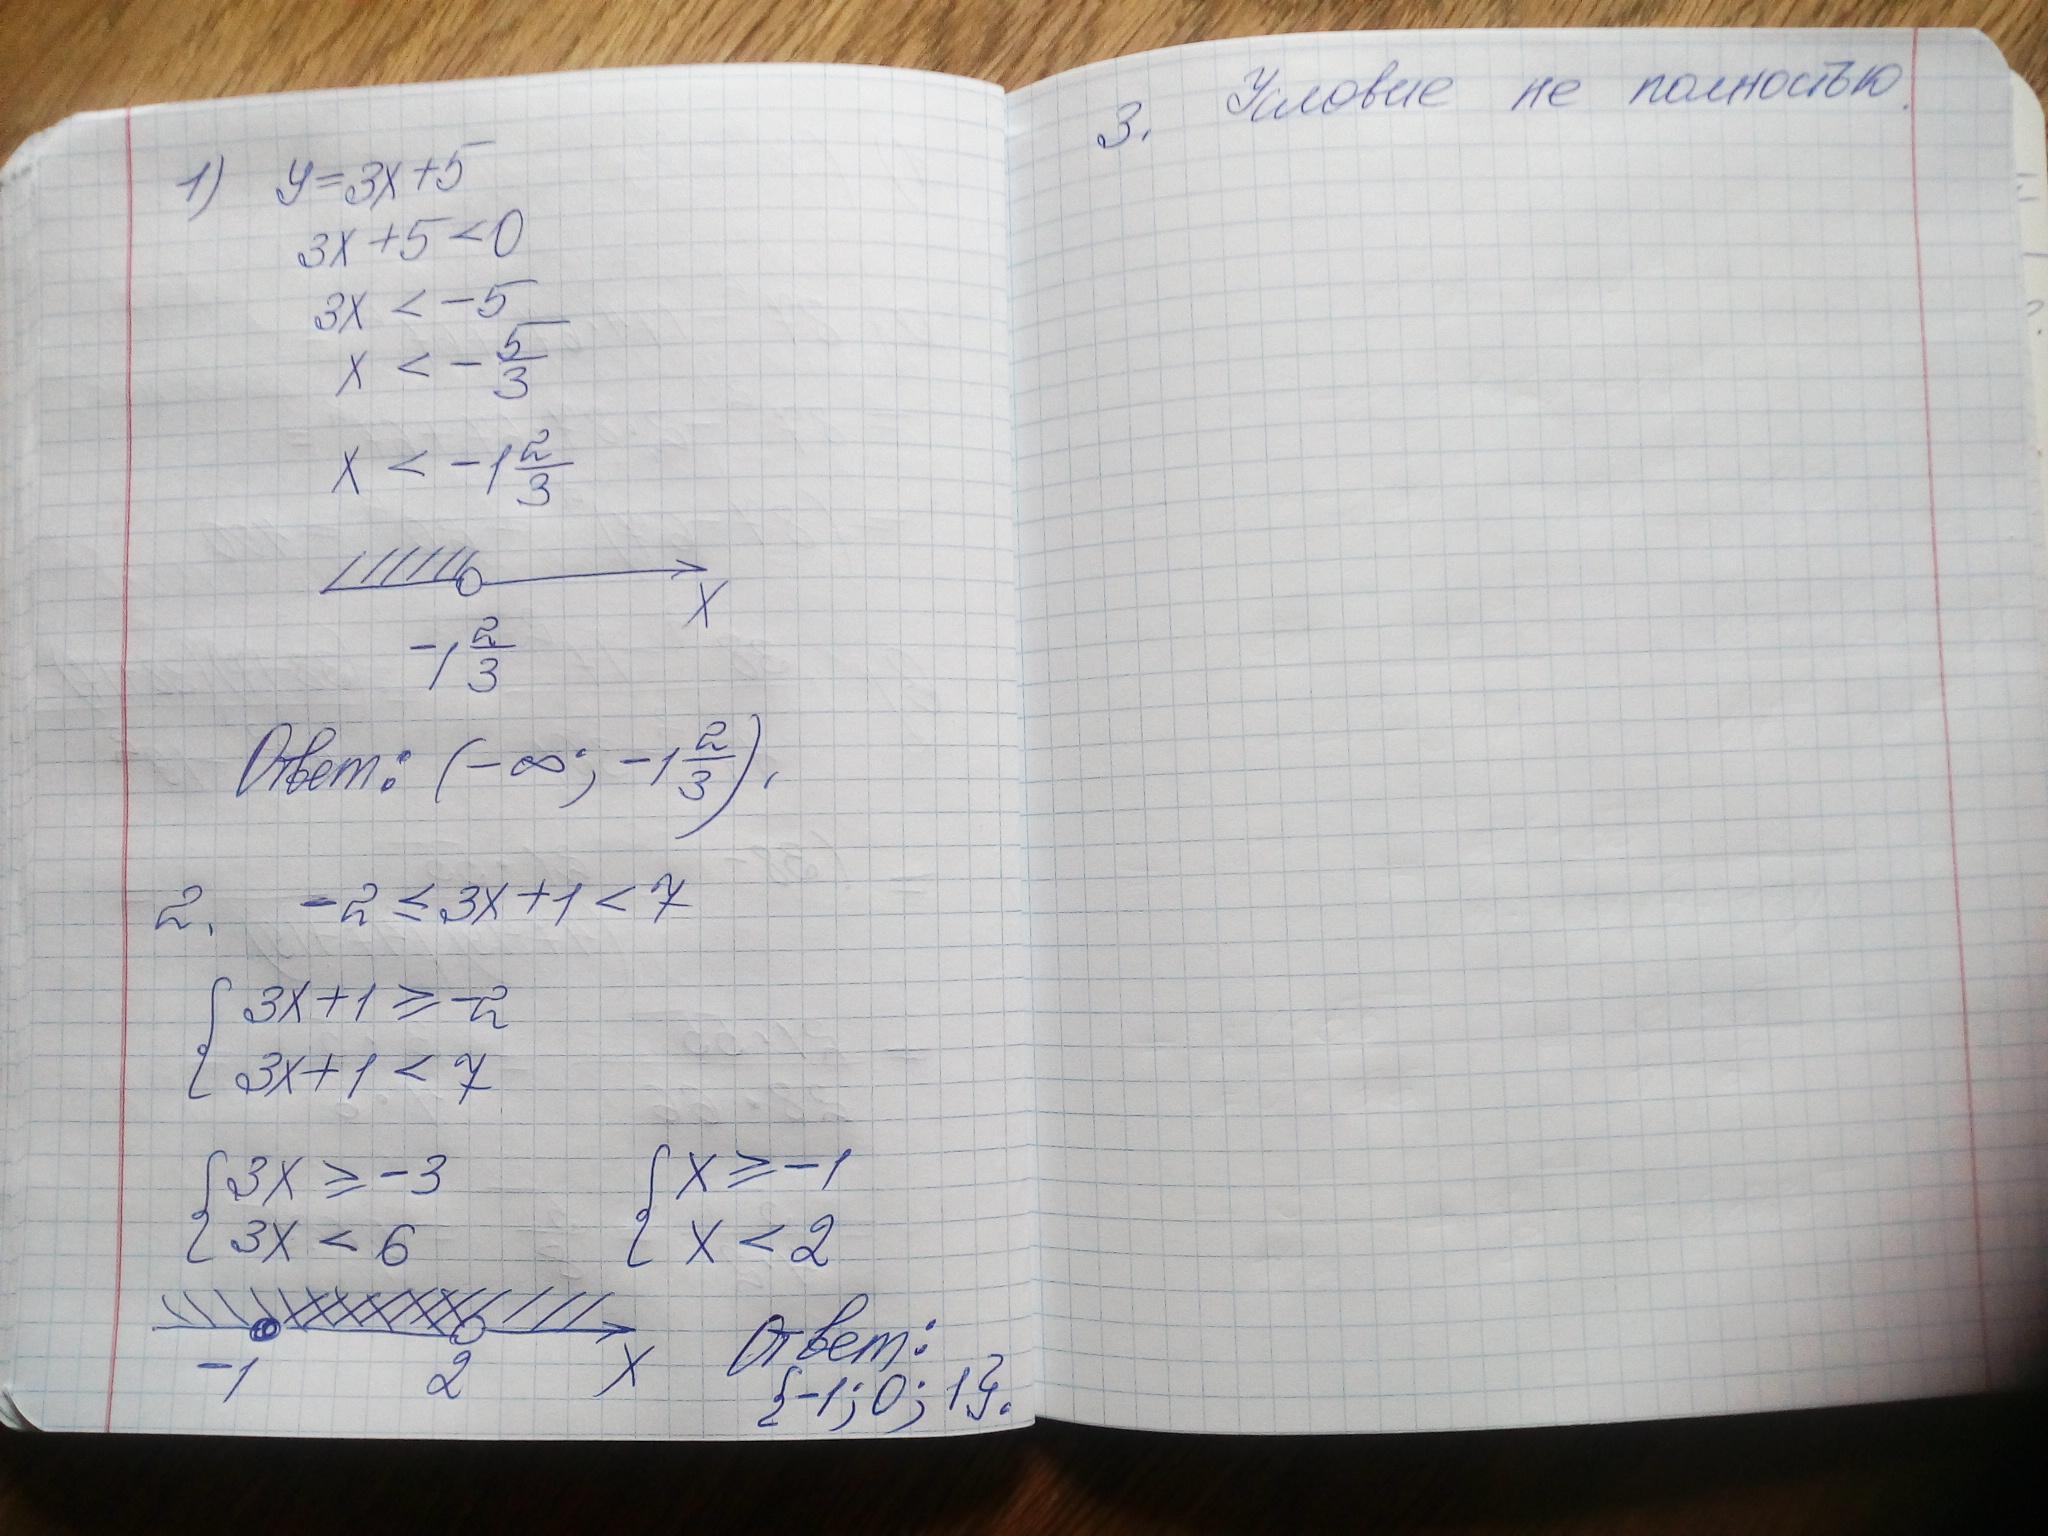 1) y=3x+5
3x+5<0
3x < -5
x < -5/3
x < -1 2/3
x
-1 2/3
Ответ: (-∞; -1 2/3).
2. -2 ≤ 3x+1 < 7
{ 3x+1 ≥ -2
3x+1 < 7
{ 3x ≥ -3
3x < 6
{ x ≥ -1
x < 2
-1 2 x
Ответ:
{-1; 0; 1}.
3. Условие не полностью.